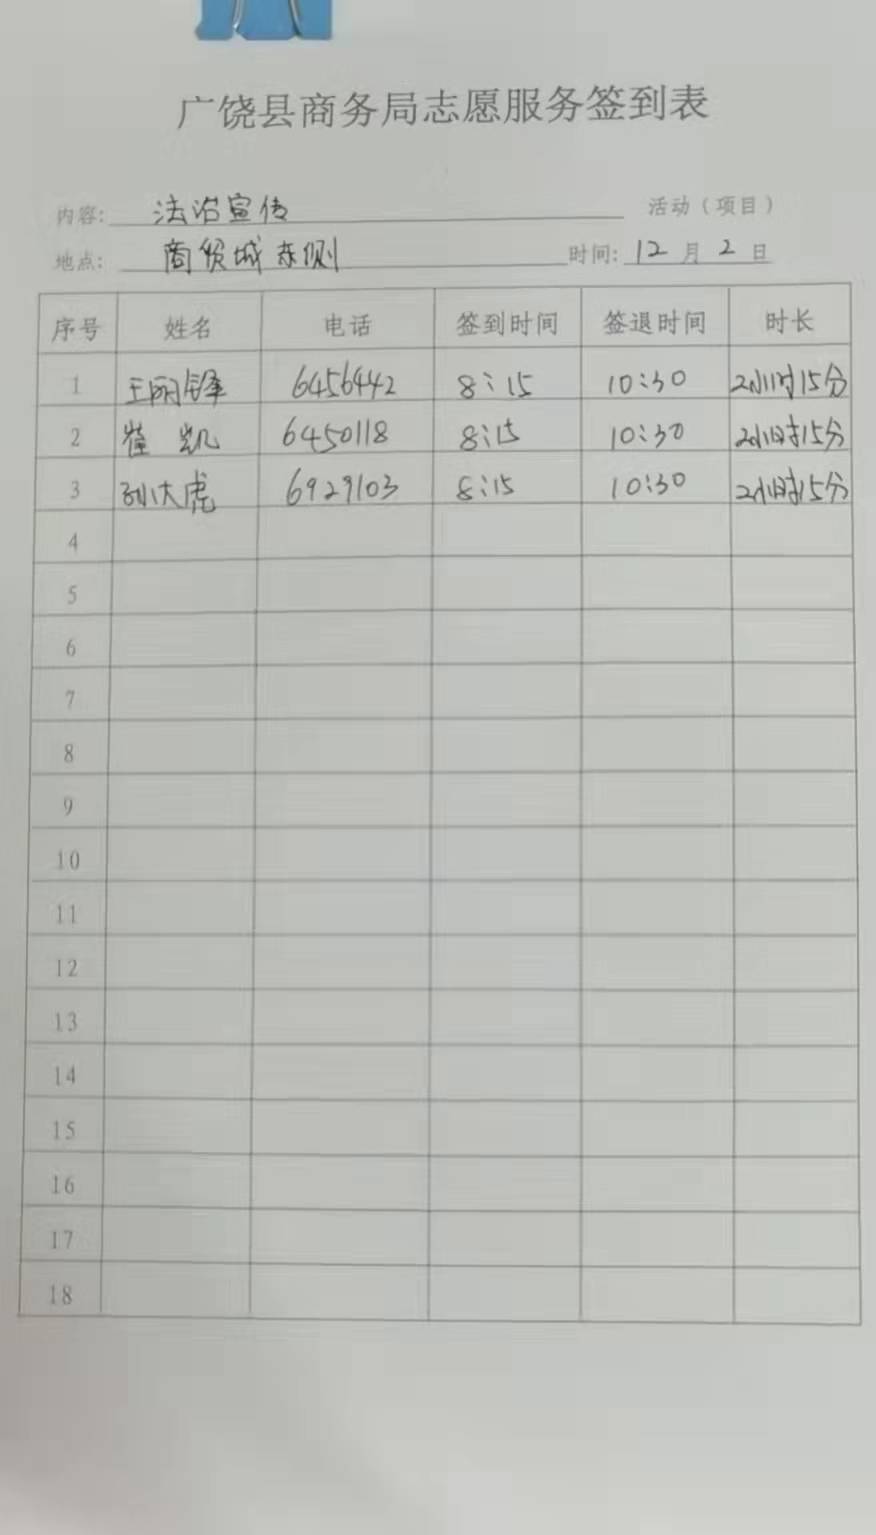 广饶县商务局志愿服务签到表
内容: 法治宣传 活动（项目）
地点: 商贸城东侧 时间: 12月2日
序号 姓名 电话 签到时间 签退时间 时长
1 王丽锋 6456442 8:15 10:30 2小时15分
2 崔凯 6450118 8:15 10:30 2小时15分
3 孙大虎 6929103 8:15 10:30 2小时15分
4
5
6
7
8
9
10
11
12
13
14
15
16
17
18